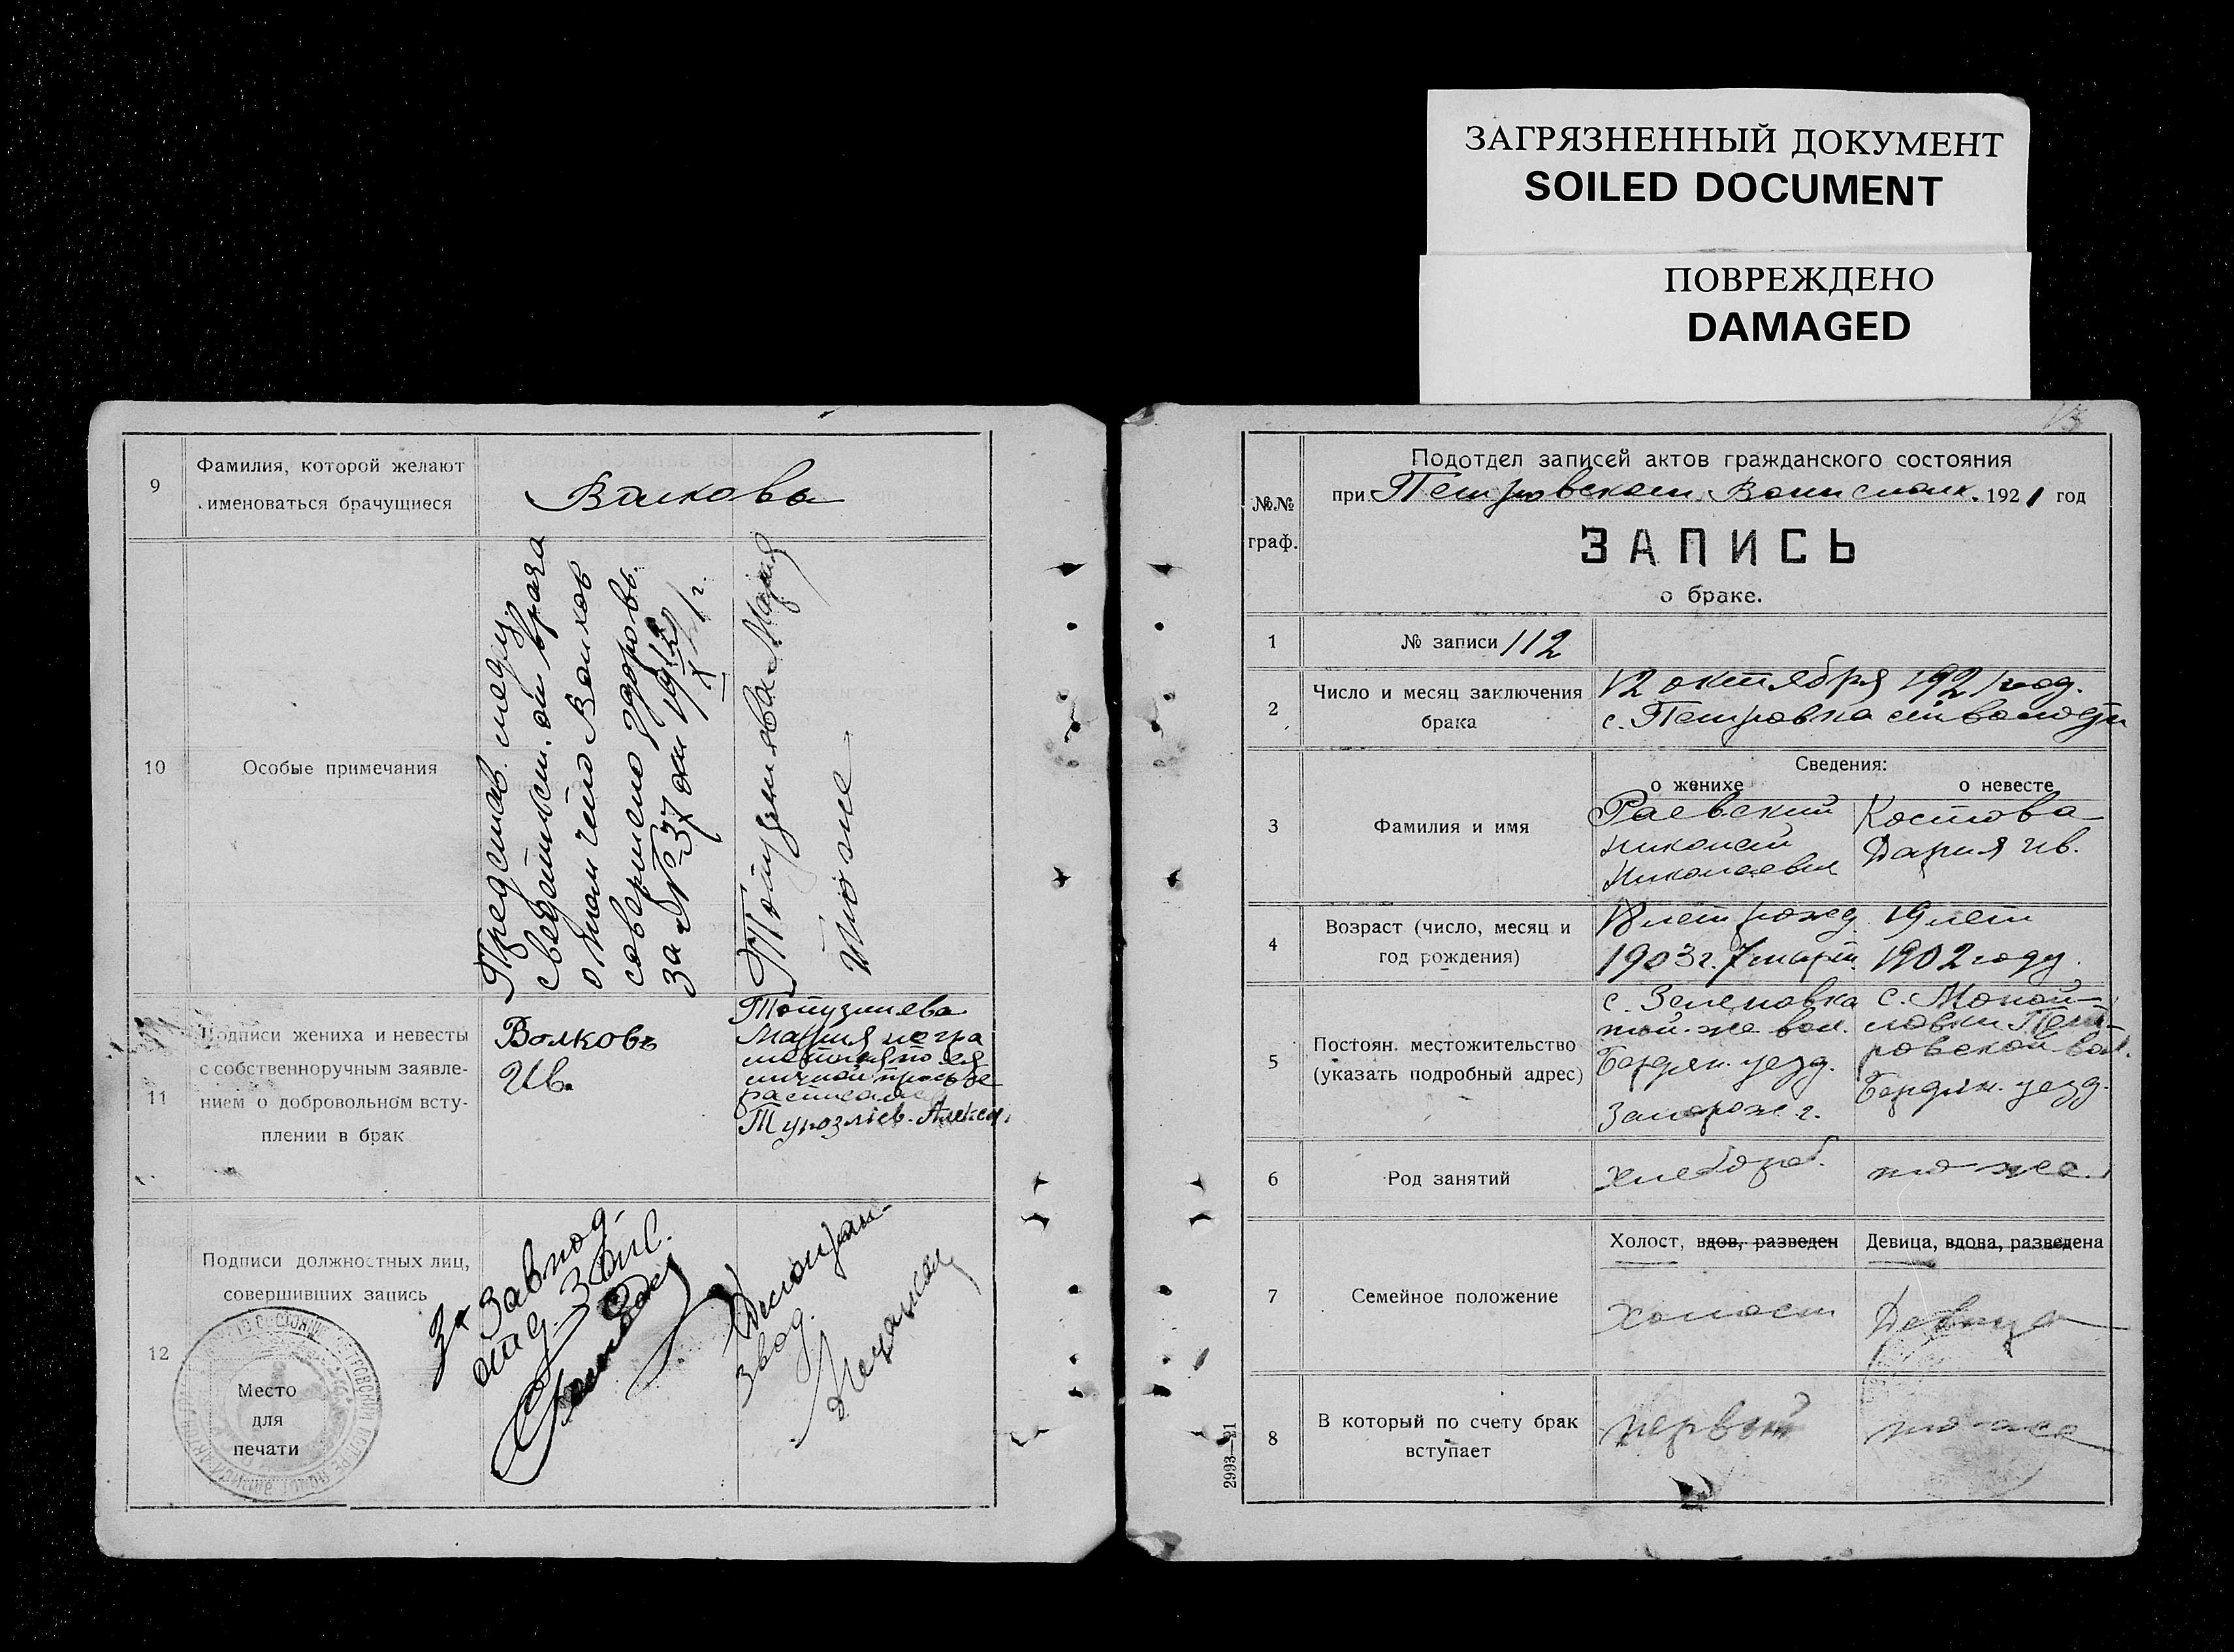 ЗАГРЯЗНЕННЫЙ ДОКУМЕНТ
SOILED DOCUMENT
ПОВРЕЖДЕНО
DAMAGED
9
Фамилия, которой желают
именоваться брачущиеся
Волковы
10
Особые примечания
Представ. между
свидетельст. от врача
о том что Волков
совершено здоровъ.
за № 37 от 19 12/X 21 г.
Топузлиева Мария
тоже
11
Подписи жениха и невесты
с собственноручным заявле-
нием о добровольном всту-
плении в брак
Волковъ
Ив.
Топузлиева
Мария негра
мотная по ея
личной просьбе
расписался
12
Подписи должностных лиц,
совершивших запись
Место
для
печати
За Завпод.
отд. Записи
13
№№
граф.
Подотдел записей актов гражданского состояния
при Петровском Волисполк. 1921 год
ЗАПИСЬ
о браке.
1
№ записи 112
2
Число и месяц заключения
брака
12 октября 1921 год.
с. Петровка
Сведения:
о женихе
о невесте
3
Фамилия и имя
Раевский
Николай
Николаевич
Костова
Дария Ив.
4
Возраст (число, месяц и
год рождения)
18 лет рожд.
1903 г. 7 март.
19 лет
1902 году.
5
Постоян. местожительство
(указать подробный адрес)
с. Зеленовка
той-же вол.
Бердян. уезд.
Запорож. г.
с.
ловки Пет-
ровской вол.
Бердян. уезд.
6
Род занятий
хлебороб.
то же
7
Семейное положение
Холост, вдов, разведен
Девица, вдова, разведена
холост
Девица
8
В который по счету брак
вступает
первый
то же
2993—21